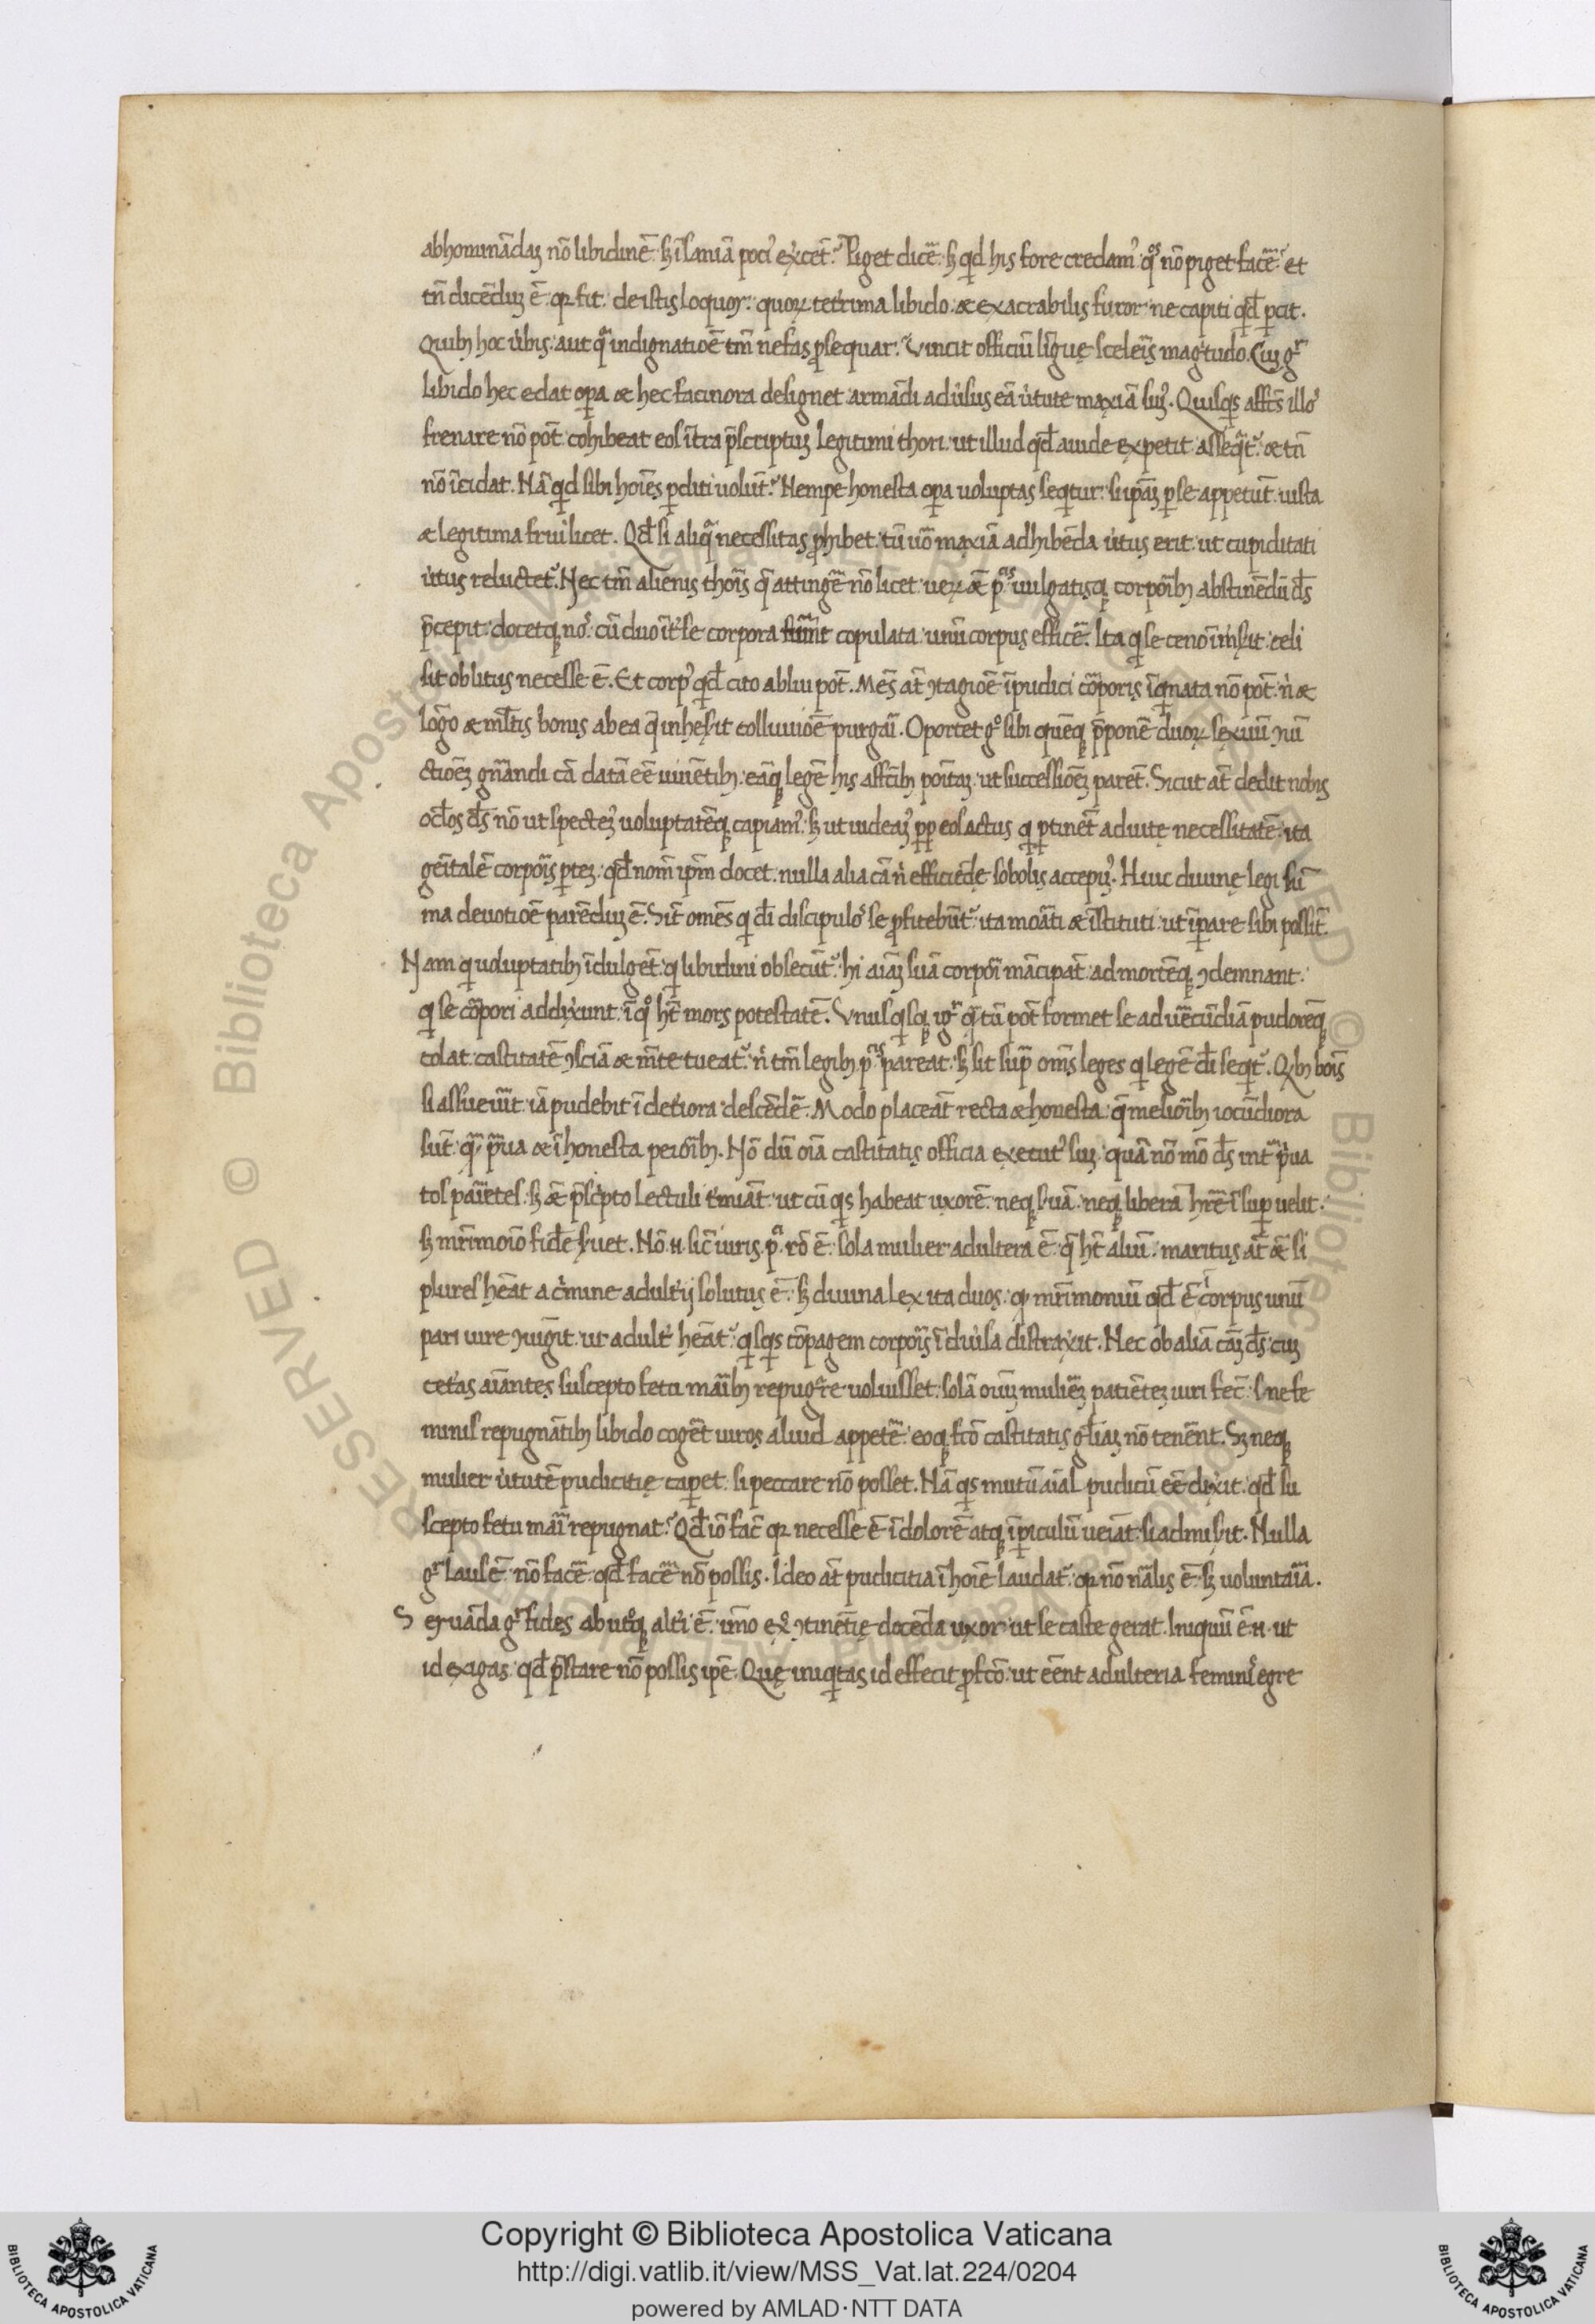 abhominādaȝ nō libidinē. sȝ īsaniā poci᾽ ex̾cēt᾽. Piget dicē᷒. sȝ qid his fore credam᾽ qͦs nō piget facē᷒. et
tn̄ dicēduȝ ē. qꝛ fit. de istis loquor. quoꝝ tet᾽rima libido. ⁊ exacrabilis furor ne capiti qđ ꝑcit.
Quibȝ hoc u᾽bis. aut qͣ indignatiōē tm̄ nefas ꝓsequar. Vincit officiū līguę sceleīs magͥtudo. Cuȝ gͦ
libido hec edat oꝑa ⁊ hec facinora designet armādi adu᾽sus eā u᾽tute maxīā sum᾽. Quisqͥs affc̄s illo᾽
frenare nō pōt. cohibeat eos ītra p̄scriptuȝ legitimi thori. ut illud qđ auide expetit asseqͣt᾽. ⁊ tn̄
nō īcidat. Nā qͥd sibi hoīēs ꝑditi uolūt᾽. Nempe honesta oꝑa uoluptas seqͥtur. si ipāȝ ꝑ se appetūt. iusta
⁊ legitima frui licet. Qđ si aliqͣ necessitas ꝓhibet. tū uō maxīā adhibēda u᾽tus erit. ut cupiditati
u᾽tus reluctet᾽. Nec tm̄ alienis thoīs q̄ attingē᷒ nō licet. ueꝝ ⁊̄ pᵃˢ. uulgatisqꝫ corpoībȝ abstinēdū d̄s
p̄cepit. docetqꝫ nō᾽. cū duo īt᾽ se corpora fūnt copulata. unū corpus efficē᷒. Ita qͥ se ceno īm̾sit. celi
sit oblitus necesse ē. Et corp᾽ qđ cito ablui pōt. Mēs āt ꝯtagiōē īpudici cōꝑoris īqͥnata nō pōt. n̾ ⁊
lōgo ⁊ ml̄tis bonis ab ea q̄ inhęsit colluuiōē purgaī. Oportet gͦ sibi quēqꝫ p̄ponē᷒ duoꝝ sexuū ꝯiū
ctiōēȝ gn̄andi cā datā eē uiuētibȝ. eāqꝫ legē his affc̄ibȝ poītaȝ. ut successiōēȝ parēt. Sicut āt dedit nobis
oc̄los d̄s nō ut spectem᾽ uoluptatēqꝫ capiam᾽. sȝ ut uideam᾽ ꝓpꝑ eos actus qͥ ꝑtinēt ad uitę necessitatē. ita
geītalē corpoīs ꝑteȝ. qđ nom̄ ip̄m docet. nulla alia cā n̾ efficiēdę sobolis accepim᾽. Huic diuinę legi sū
ma deuotiōē parēduȝ ē. Sīt omēs qͥ d̄i discipulo᾽ se ꝓfitebūt᾽. ita moāti ⁊ īstituti. ut īꝑare sibi possīt.
Nam qͥ uoluptatibȝ īdulgēt. qͥ libidini obsecūt᾽. hi aīaȝ suā corpoī mācipāt. ad mortēqꝫ ꝯdemnant.
qͥ se cōpori addix̾unt. ī qͦ hȝ̄t mors potestatē. Vnusqͥsqꝫ igͥ qͣ̄tū pōt formet se ad uēcūdiā pudorēqꝫ
colat. castitatē ꝯsciā ⁊ m̄te tueat᾽. n̾ tm̄ legibȝ pᵃˢ pareat. sȝ sit suꝑ om̄s leges qͥ legē d̄i seqͥt᾽. Qͥbȝ boīs
si assueuīt. iā pudebit ī det᾽iora descēdē᷒. Modo placeāt recta ⁊ honesta. q̄ melioībȝ iocūdiora
sūt. qͣȝ pͣua ⁊ īhonesta peioībȝ. Nō dū oīā castitatis officia executi᾽ sum᾽. quā nō mō d̄s int̾ p̾ua
tos paīetes. sȝ ⁊̄ p̄sc̾pto lectuli t᾽miāt. ut cū qͥs habeat uxorē. neqꝫ suā. neqꝫ liberā hr̄e īsuꝑ uelit.
sȝ mr̄imoīo fidē s̾uet. Nō .n. sic̄ iuris pᵃ. rō ē. sola mulier adultera ē. q̄ hȝ̄t aliū. maritus āt ⁊̄ si
plures hēat a c̾mine adult᾽ij solutus ē. sȝ diuina lex ita duos. qͥ mr̄imoniū qđ ē ī corpus unū
pari iure ꝯiūgit. ut adult᾽ hēat᾽. qͥsqͥs cōpagem corpoīs ī diu᾽sa distrax̾it. Nec ob aliā cāȝ d̄s. cuȝ
cet᾽as aīantes suscepto fetu maībȝ repugͣre uoluisset. solā oīuȝ muliēȝ patiēteȝ uiri fec̄. s. ne fe
minis repugnātibȝ libido cogē᷒t uiros aliud appetē᷒. eoqꝫ fc̄o castitatis gl̄iaȝ nō tenē᷒nt. Sȝ neqꝫ
mulier u᾽tutē pudicitię caꝑet. si peccare nō posset. Nā qͥs mutū aīal pudicū eē dix̾it. qđ su
scepto fetu maī repugnat᾽. Qđ iō fac̄ qꝛ necesse ē ī dolorē atqꝫ īꝑiculū ueīat. si admis̾it. Nulla
gͦ laus ē. nō facē᷒. qđ facē᷒ nō possis. Ideo āt pudicitia ī hoīē laudat᾽. qꝛ nō nālis ē. sȝ uoluntaīa.
Seruāda gͦ fides ab utͦqꝫ alt᾽i ē. īmo exͦ ꝯtinētię docēda uxor ut se caste gerat. Iniquū ē .n. ut
id exigas. qđ p̄stare nō possis ip̄e. Quę iniqͥtas id effecit ꝓfc̄o. ut eēnt adulteria feminīs egre
Copyright © Biblioteca Apostolica Vaticana
http://digi.vatlib.it/view/MSS_Vat.lat.224/0204
powered by AMLAD·NTT DATA